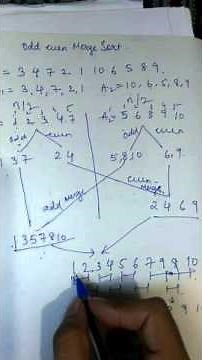 Odd even Merge Sort.
= 3 4 7 2 1 10 6 5 8 9.
= 3, 4, 7, 2, 1 A₂ = 10, 6, 5, 8, 9
n/2 n/2
1 2 3 4 7 A₂ 5 6 8 9 10
odd even odd even
1 3 7 2 4 5, 8, 10 6, 9
odd merge even merge
1 3 5 7 8 10 2 4 6 9
1 2 3 4 5 6 7 9 8 10